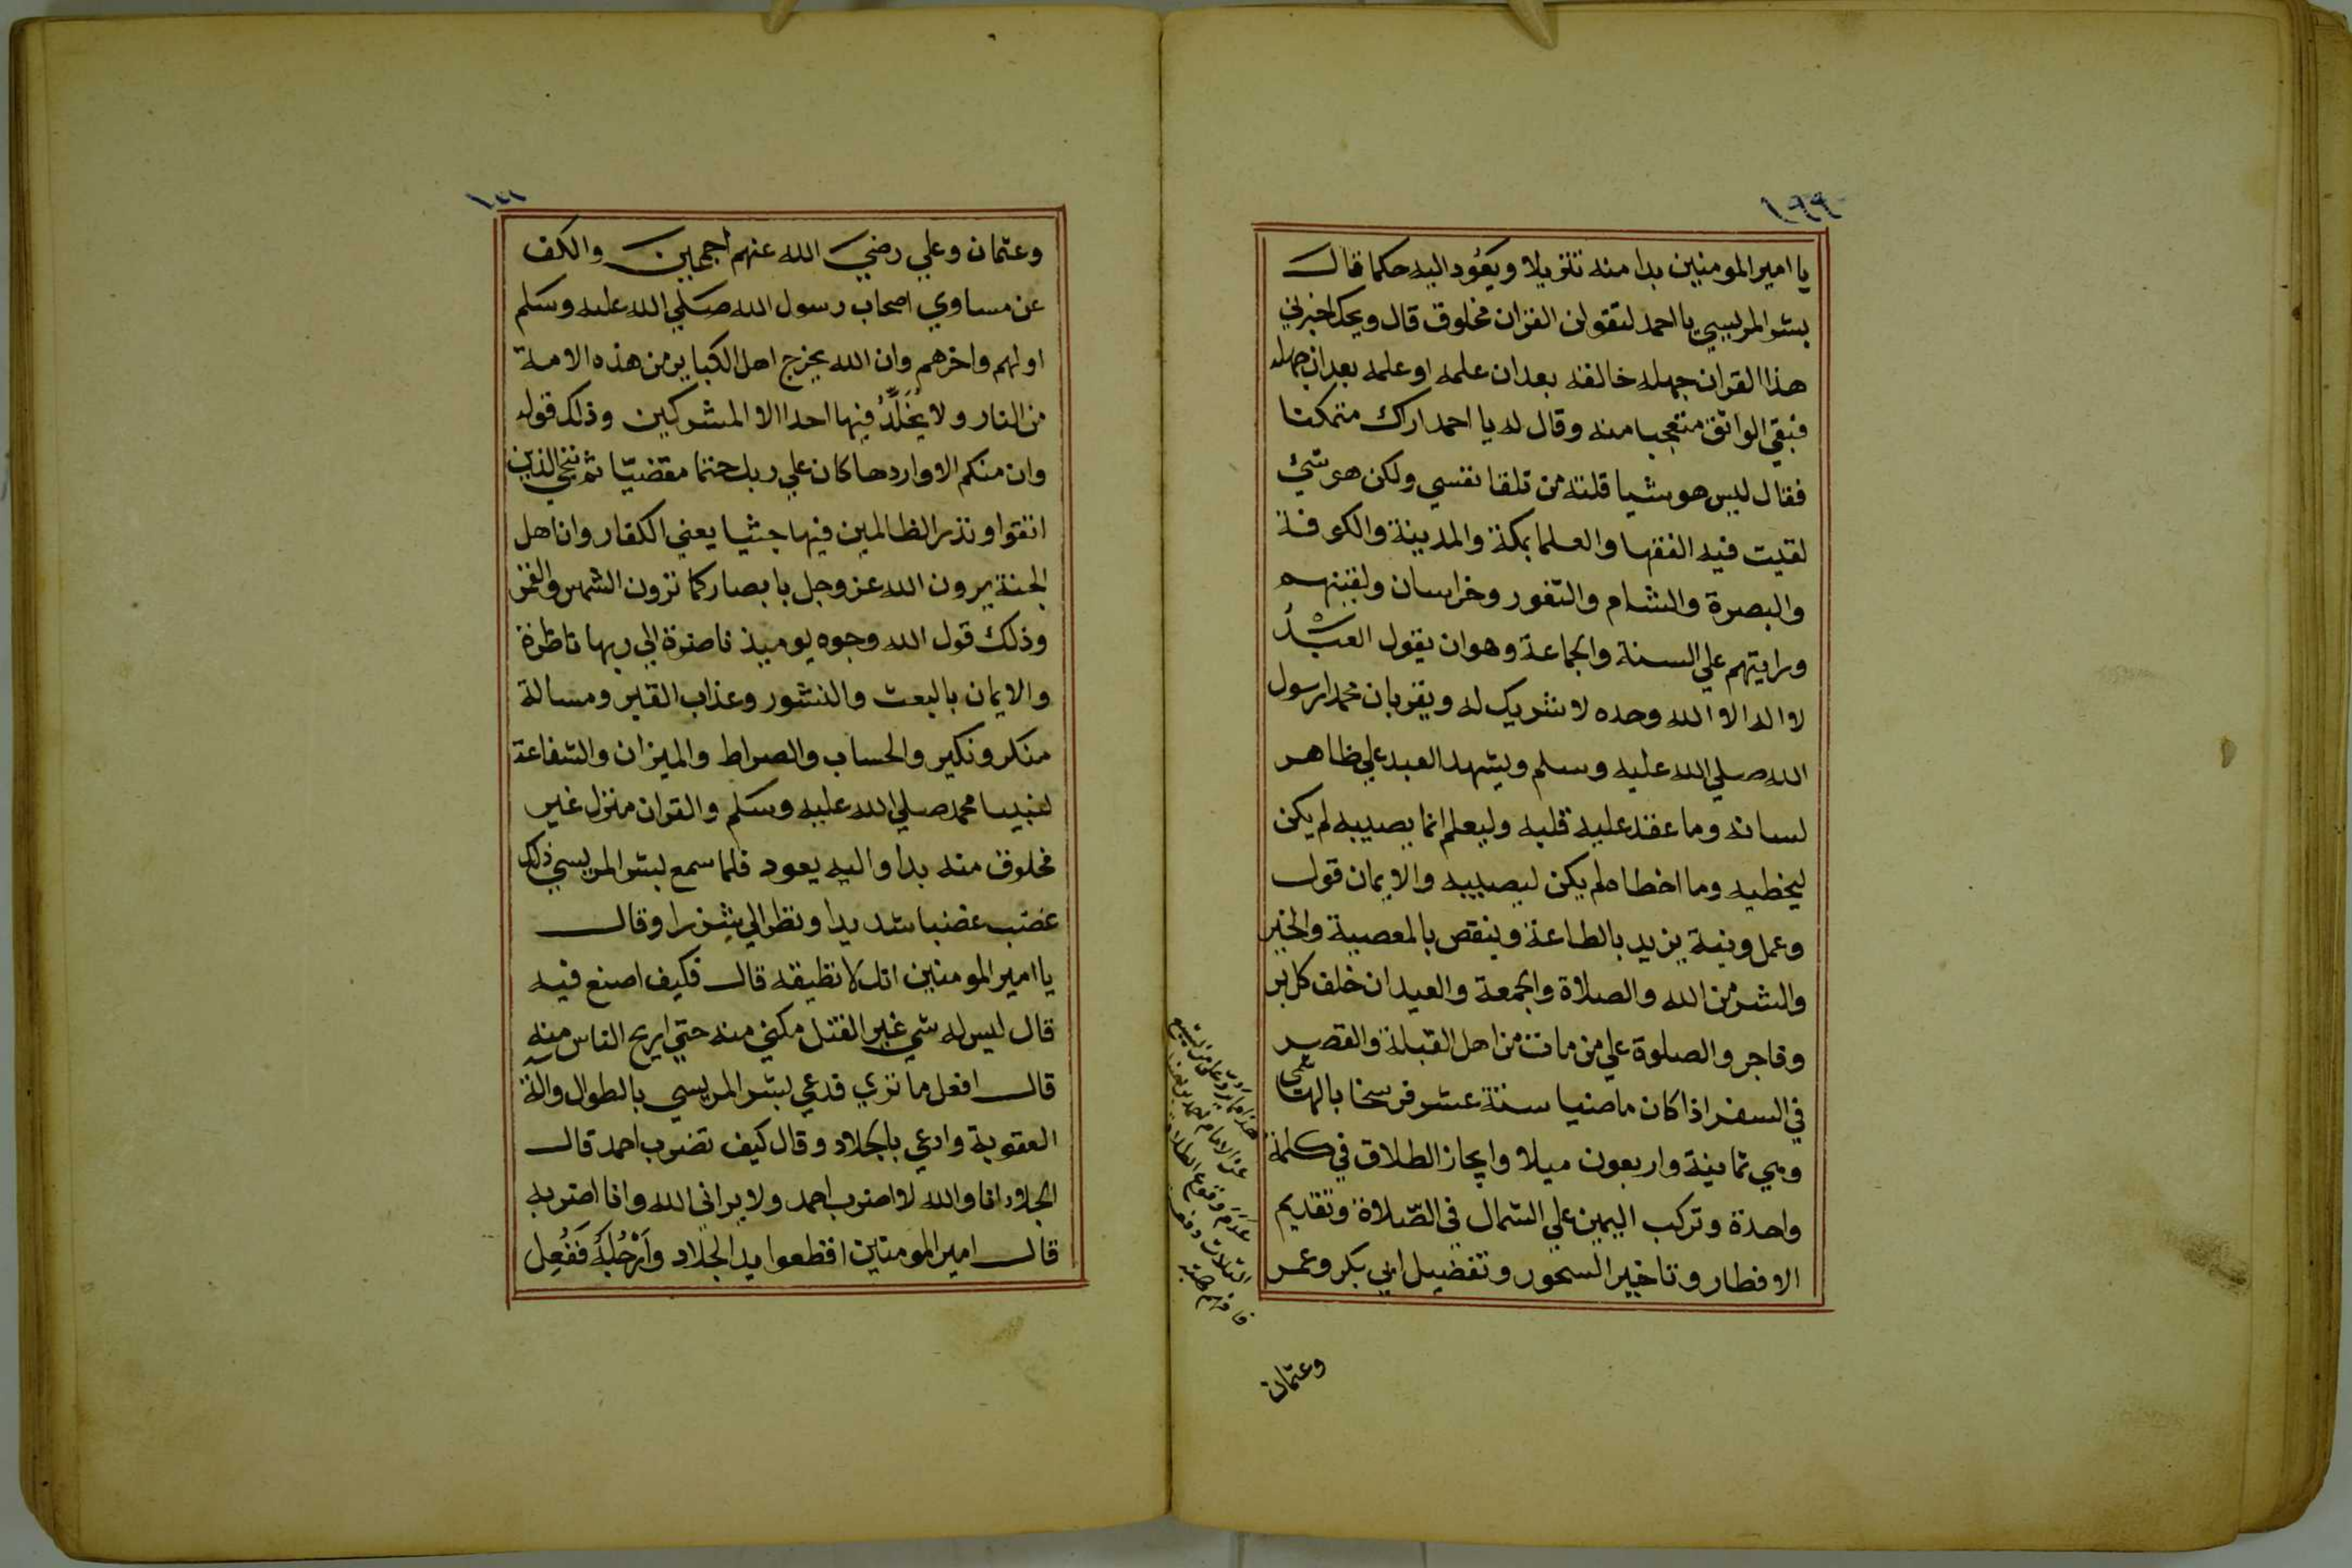 يا امير المومنين بدا منه تنزيلا ويعود اليه حكما قال
بشر المريسي يا احمد لتقولن القران مخلوق قال ويحك اخبرني
هذا القران جهله خالقه بعد ان علمه او علمه بعد ان جهله
فبقي الواثق متعجبا منه وقال له يا احمد اراك متمكنا
فقال ليس هو شيا قلته من تلقا نفسي ولكن هو شيء
لقيت فيه الفقها والعلما بمكة والمدينة والكوفة
والبصرة والشام والثغور وخراسان ولقيتهم
ورايتهم علي السنة والجماعة وهو ان يقول العبد
لا اله الا الله وحده لا شريك له ويقر بان محمدا رسول
الله صلي الله عليه وسلم ويشهد العبد علي ظاهر
لسانه وما عقد عليه قلبه وليعلم انما يصيبه لم يكن
ليخطيه وما اخطاه لم يكن ليصيبه والايمان قول
وعمل ونية يزيد بالطاعة وينقص بالمعصية والخير
والشر من الله والصلاة والجمعة والعيدان خلف كل بر
وفاجر والصلوة علي من مات من اهل القبلة والقصر
في السفر اذا كان ماضيا ستة عشر فرسخا بالهاشمي
وهي ثمانية واربعون ميلا وايجاز الطلاق في كلمة
واحدة وتركب اليمين علي الشمال في الصّلاة وتقديم
الافطار وتاخير السحور وتفضيل ابي بكر وعمر
عن الامام احمد
عدم وقوع الطلاق
الثلاث دفعة
فافهم
وعثمان
وعثمان وعلي رضي الله عنهم اجمعين والكف
عن مساوي اصحاب رسول الله صلي الله عليه وسلم
اولهم واخرهم وان الله يخرج اهل الكباير من هذه الامة
من النار ولا يُخَلِّدُ فيها احدا الا المشركين وذلك قوله
وان منكم الا واردها كان علي ربك حتما مقضيّا ثم ننجي الذين
اتقوا ونذر الظالمين فيها جثيا يعني الكفار وان اهل
الجنة يرون الله عز وجل بابصار كما ترون الشمس والقمر
وذلك قول الله وجوه يوميذ ناضرة الي ربها ناظرة
والايمان بالبعث والنشور وعذاب القبر ومسالة
منكر ونكير والحساب والصراط والميزان والشفاعة
لنبينا محمد صلي الله عليه وسلم والقران منزل غير
مخلوق منه بدا واليه يعود فلما سمع بشر المريسي ذلك
غضب غضبا شديدا ونظر الي شزرا وقال
يا امير المومنين انك لا تطيقه قال فكيف اصنع فيه
قال ليس له شي غير القتل مكني منه حتي اريح الناس منه
قال افعل ما تري فدعي بشر المريسي بالطوال والة
العقوبة وادعي بالجلاد وقال كيف تضرب احمد قال
الجلاد انا والله لا اضرب احمد ولا يراني الله وانا اضربه
قال امير المومنين اقطعوا يد الجلاد وَارْجُلَهُ فَفُعِل